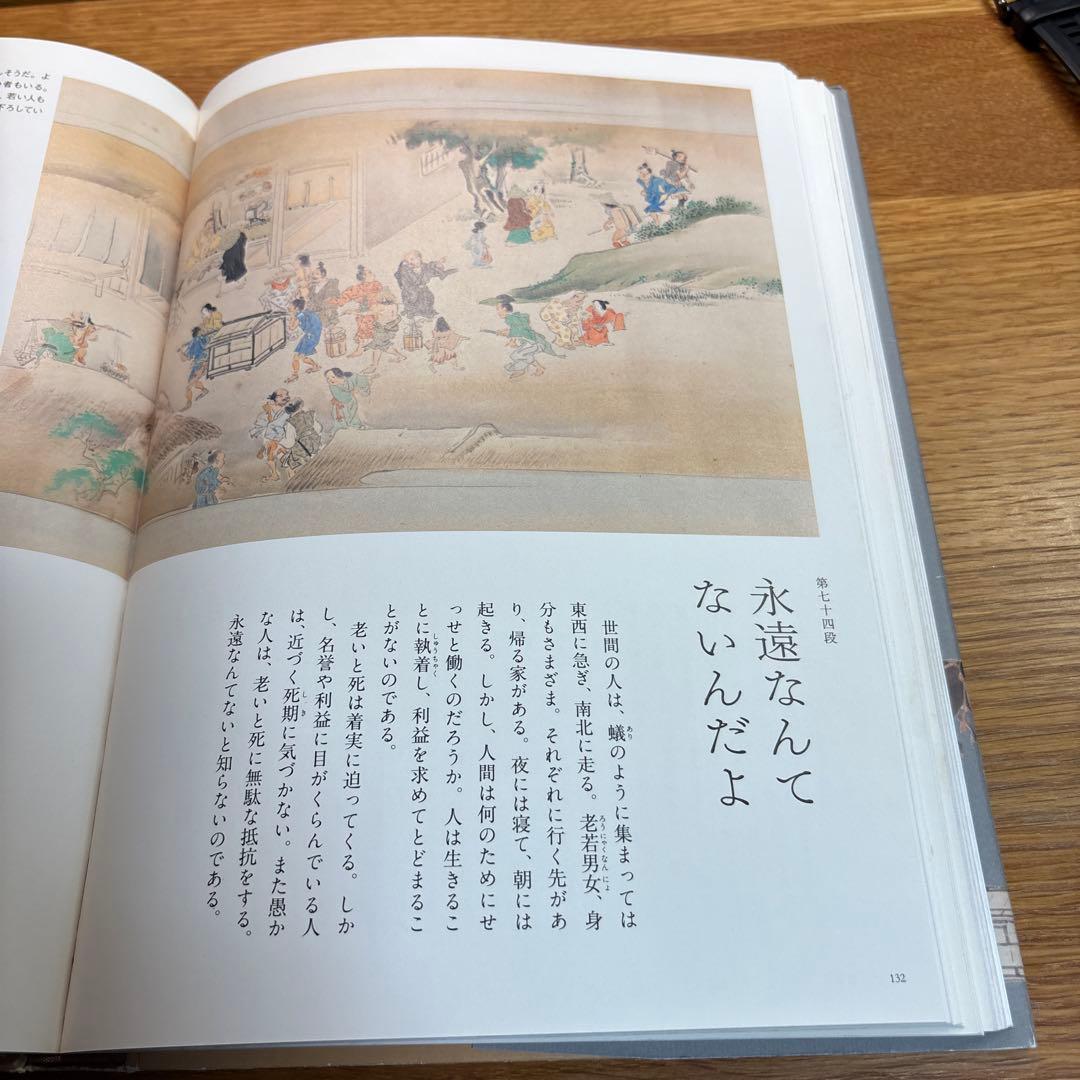 第七十四段
永遠なんて
ないんだよ
世間の人は、蟻のように集まっては
東西に急ぎ、南北に走る。老若男女、身
分もさまざま。それぞれに行く先があ
り、帰る家がある。夜には寝て、朝には
起きる。しかし、人間は何のためにせ
っせと働くのだろうか。人は生きるこ
とに執着し、利益を求めてとどまるこ
とがないのである。
老いと死は着実に迫ってくる。しか
し、名誉や利益に目がくらんでいる人
は、近づく死期に気づかない。また愚か
な人は、老いと死に無駄な抵抗をする。
永遠なんてないと知らないのである。
132
しそうだ。よ
者もいる。
、若い人も
下ろしてい